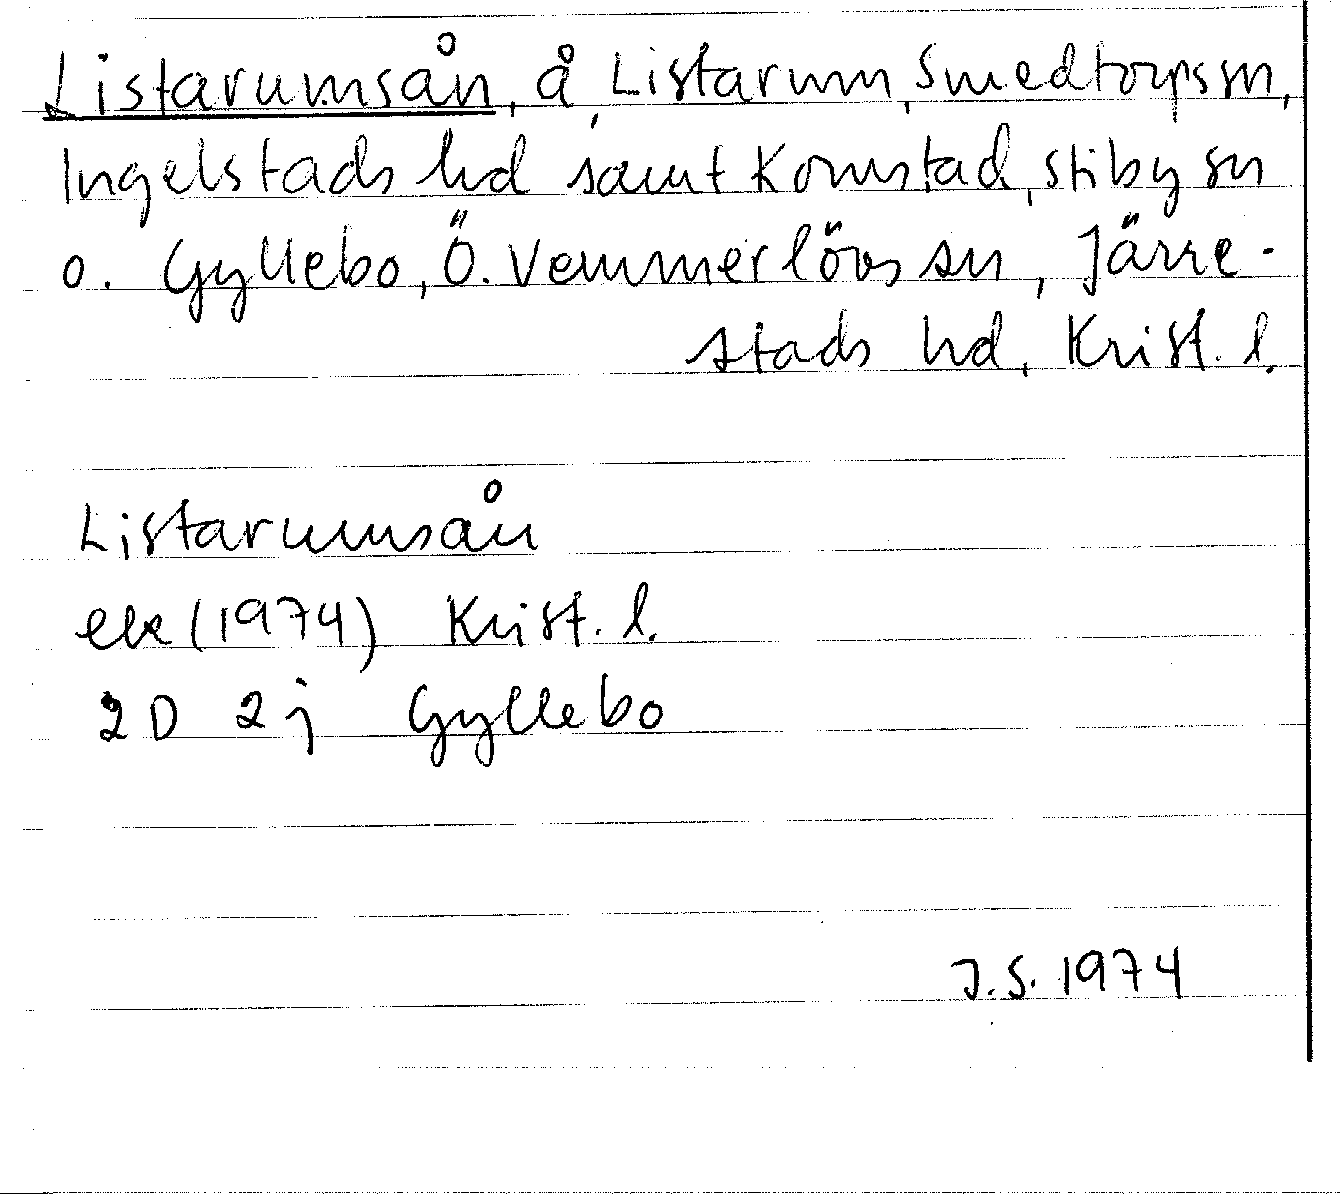 Listarumsån, å, Listarum, Smedtorps sn,
Ingelstads hd samt Komstad, Stiby sn
o. Gyllebo, Ö. Vemmerlövs sn, Järre-
stads hd, Krist. l.
Listarumsån
ek (1974) Krist. l.
2D 2j Gyllebo
J.S. 1974